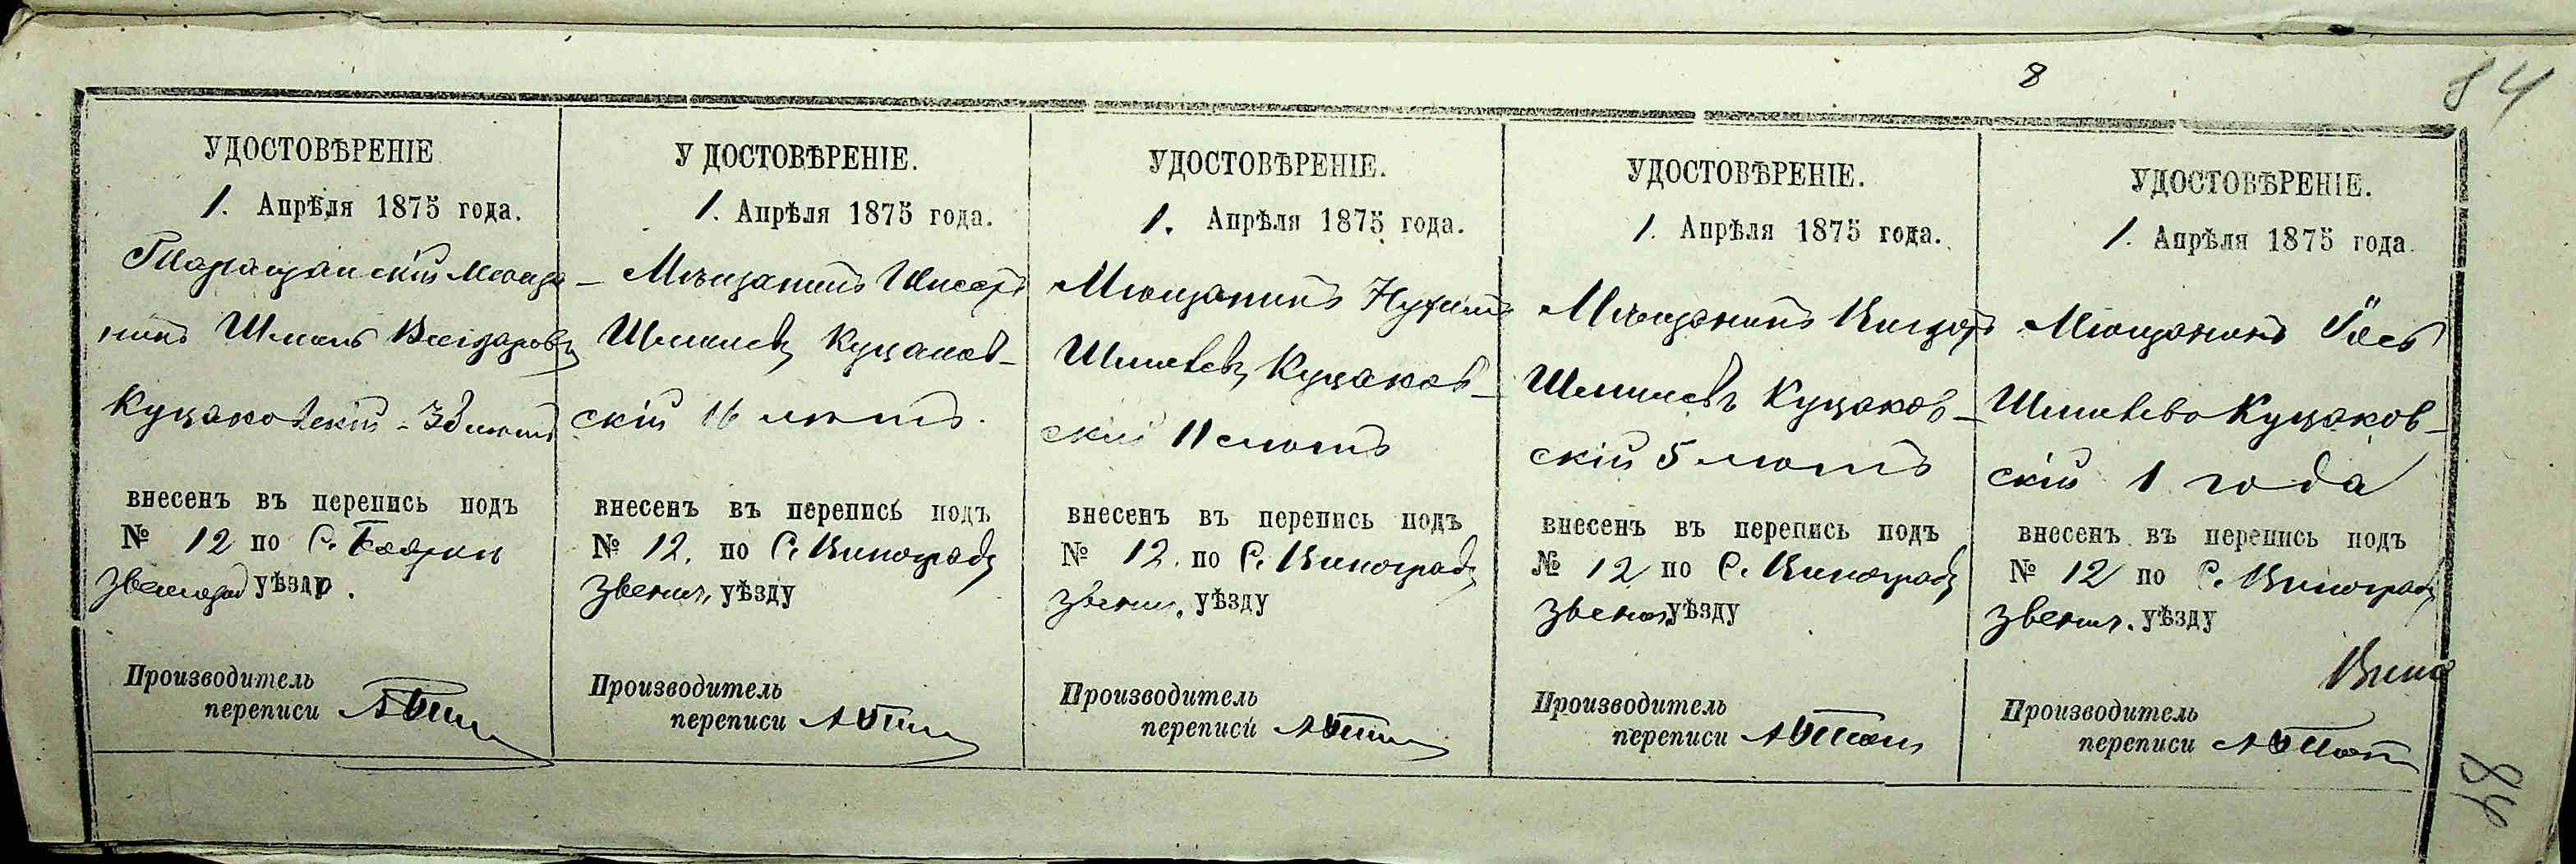 8
84
УДОСТОВѢРЕНІЕ
1. Апрѣля 1875 года.
Таращанскій Мѣща-
нинъ Шмиль
Куцаковскій - 38 лѣтъ
внесенъ въ перепись подъ
№ 12 по С. Боярки
Звенигород уѣзду.
Производитель
переписи
У ДОСТОВѢРЕНІЕ.
1. Апрѣля 1875 года.
Мѣщанинъ
Шмилевъ Куцаков-
скій 16 лѣтъ.
внесенъ въ перепись подъ
№ 12. по С. Виноградъ
Звениг. уѣзду
Производитель
переписи
УДОСТОВѢРЕНІЕ.
1. Апрѣля 1875 года.
Мѣщанинъ Нухимъ
Шмилевъ Куцаков-
скій 11 лѣтъ
внесенъ въ перепись подъ
№ 12. по С. Виноградъ
Звениг. уѣзду
Производитель
переписи
УДОСТОВѢРЕНІЕ.
1. Апрѣля 1875 года.
Мѣщанинъ
Шмилевъ Куцаков-
скій 5 лѣтъ
внесенъ въ перепись подъ
№ 12 по С. Виноградъ
Звениг. уѣзду
Производитель
переписи
УДОСТОВѢРЕНІЕ.
1. Апрѣля 1875 года.
Мѣщанинъ
Шмилевъ Куцаков-
скій 1 года
внесенъ въ перепись подъ
№ 12 по С. Виноградъ
Звениг. уѣзду
Вино
Производитель
переписи